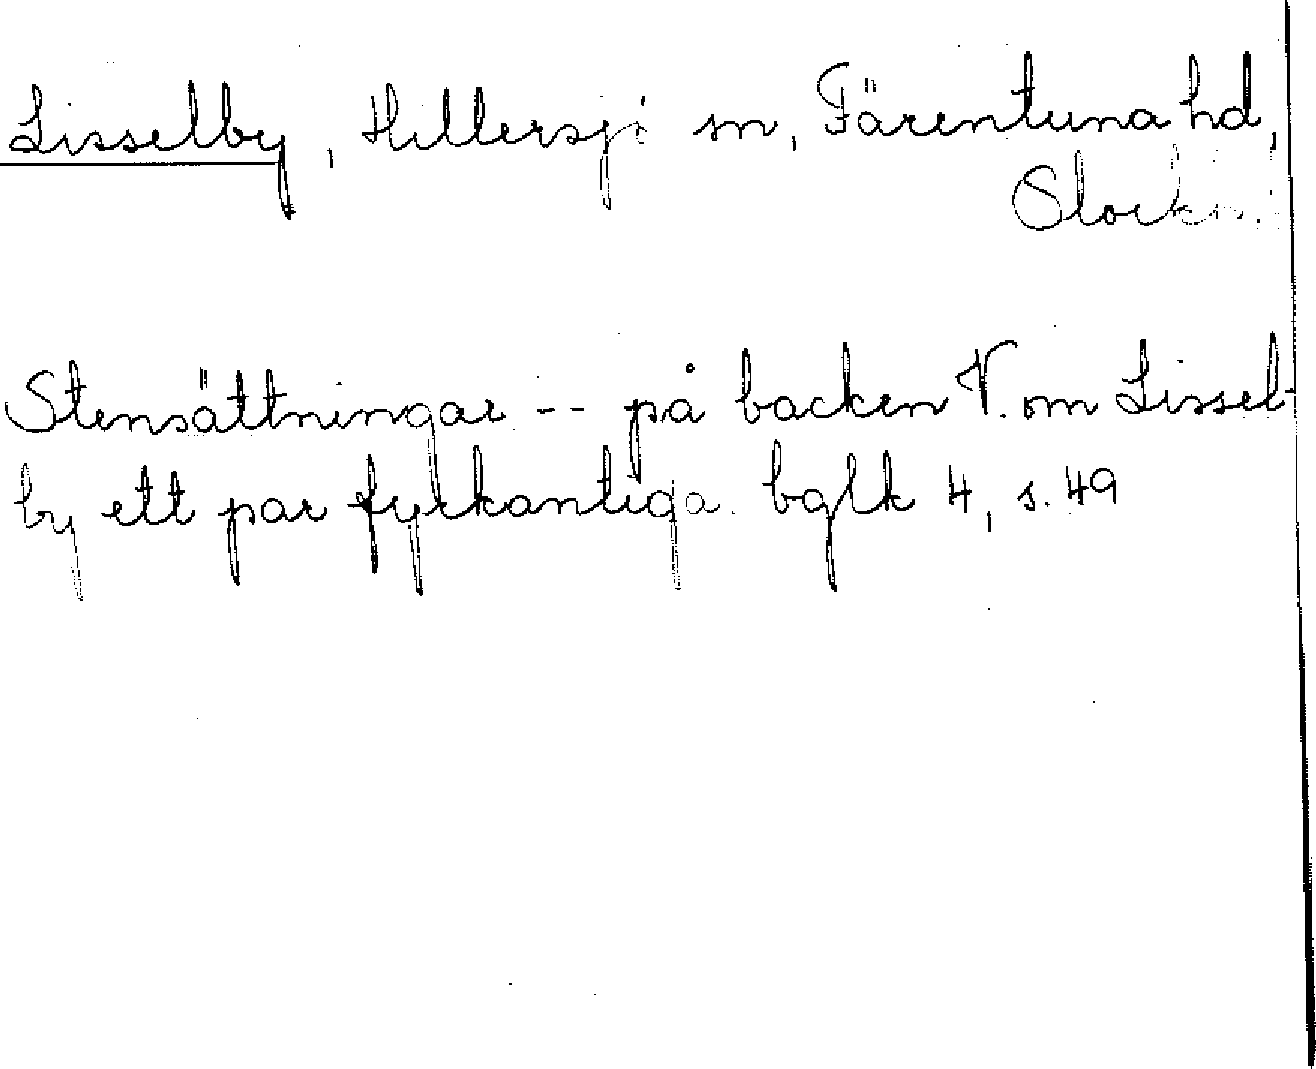 Lisselby, Hillersjö sn, Färentuna hd,
Stockh.
Stensättningar -- på backen V. om Lissel-
by ett par fyrkantiga. bglk 4, s. 49